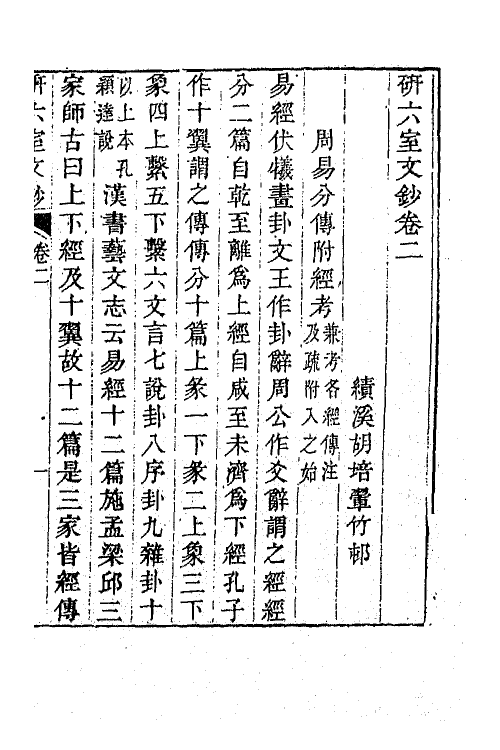 研六室文鈔卷二
績溪胡培翬竹邨
周易分傳附經考兼考各經傳注
及疏附入之始
易經伏犧畫卦文王作卦辭周公作爻辭謂之經經
分二篇自乾至離爲上經自咸至未濟爲下經孔子
作十翼謂之傳傳分十篇上彖一下彖二上象三下
象四上繫五下繫六文言七說卦八序卦九雜卦十
以上本孔
穎達說漢書藝文志云易經十二篇施孟梁邱三
家師古曰上下經及十翼故十二篇是三家皆經傳
研六室文鈔 卷二 一